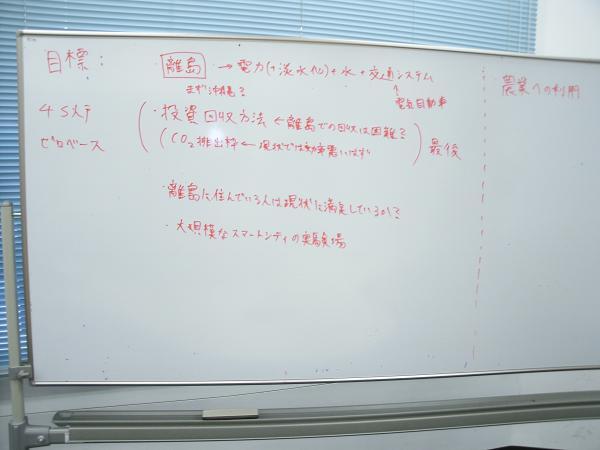 目標:
離島 → 電力(+淡水化)+水+交通システム
まず沖縄?
↑
電気自動車
4S以下
ゼロベース
・投資回収方法 ← 離島での回収は困難?
(CO2排出枠 ← 現状では効率悪いはず
最後
・離島に住んでいる人は現状に満足しているか?
・大規模なスマートシティの実験場
農業への利用